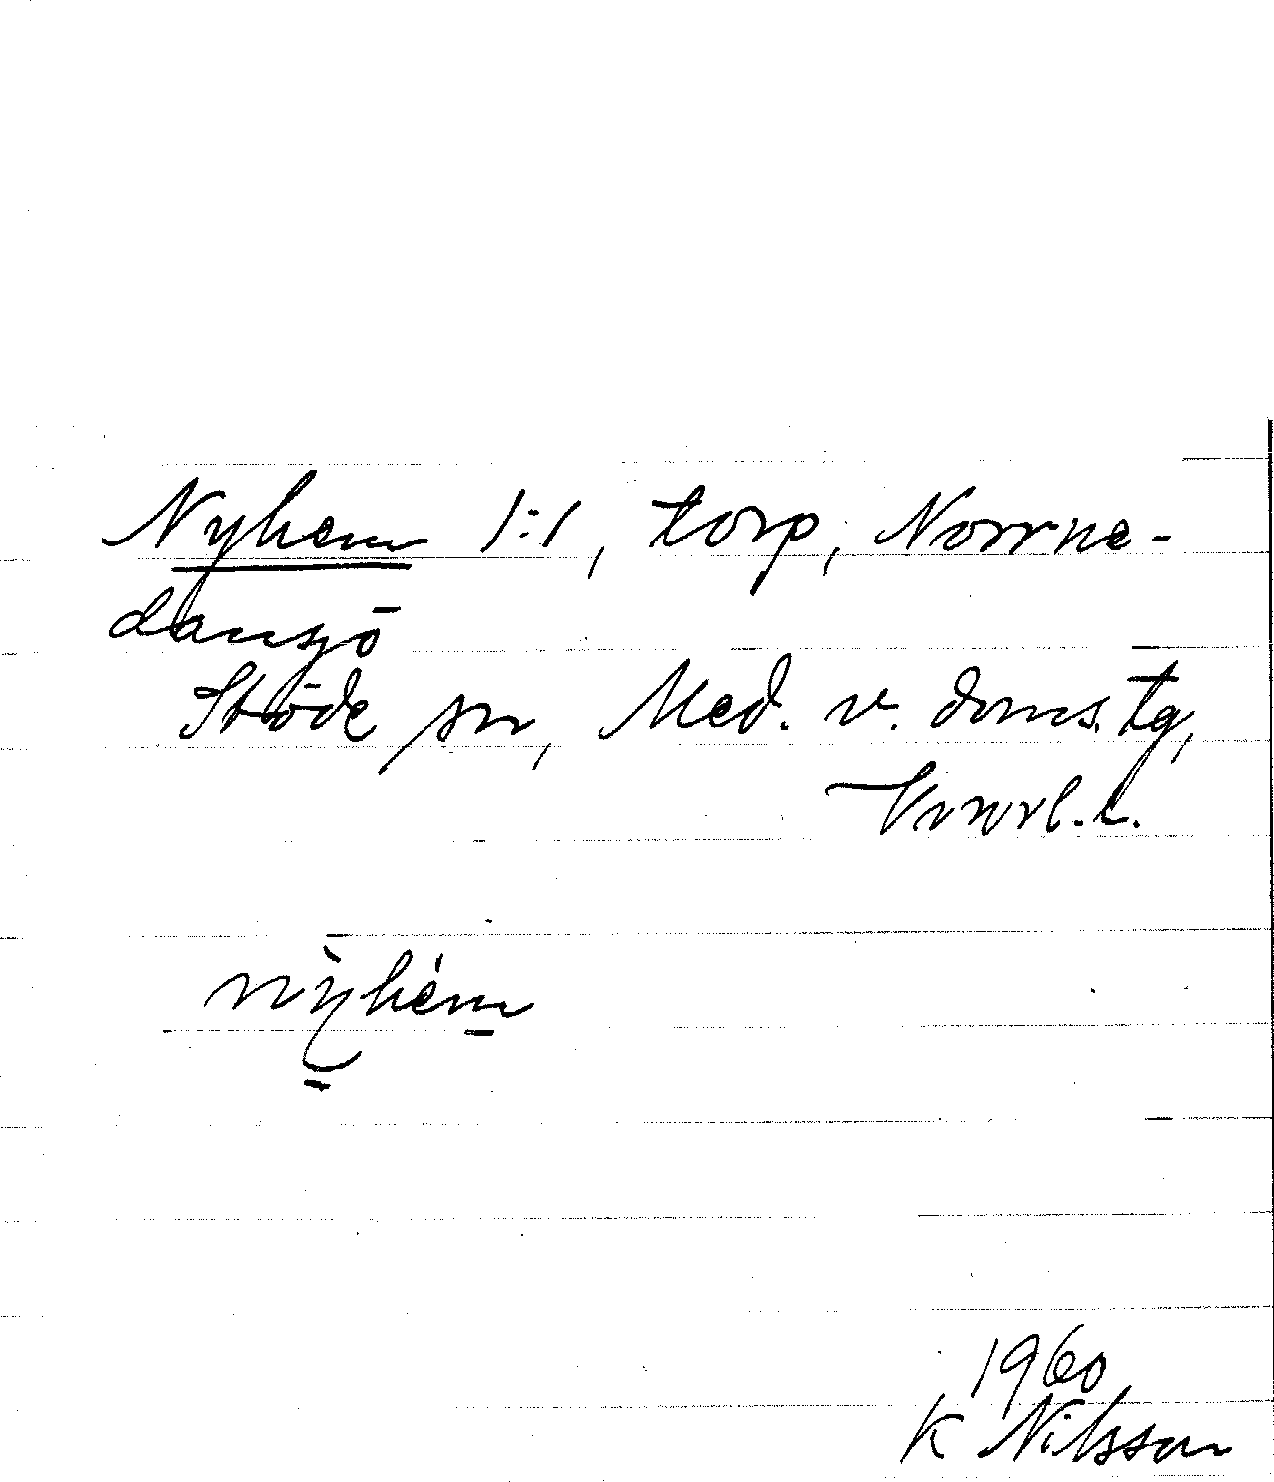 Nyhem 1:1, torp, Norrne-
dansjö
Stöde sn, Med. v. doms. tg,
Vnorl. l.
nỳhém
1960
K Nilsson